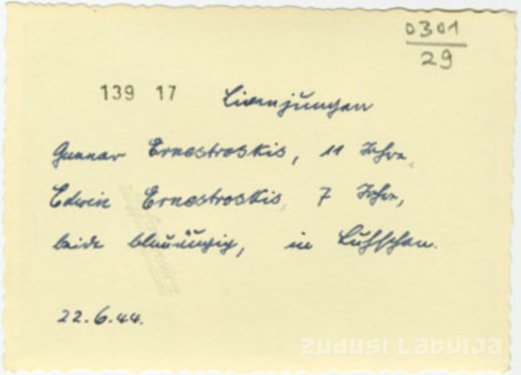 0301
29
139 17 Livenjungen
Gunnar Ernestroskis, 11 Jahre,
Edwin Ernestroskis, 7 Jahre,
beide blauäugig, in
22.6.44.
ZUDUSI LATVIJA